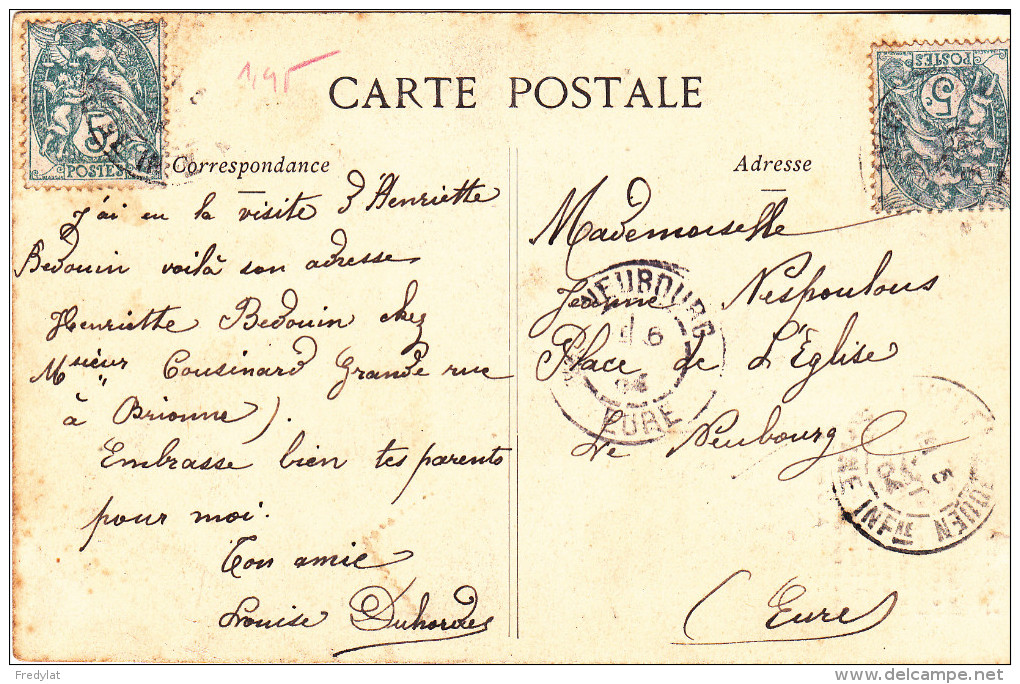 1,95
CARTE POSTALE
5c
POSTES
5c
POSTES
Correspondance
J'ai eu la visite d'Henriette
Bedouin voilà son adresse
Henriette Bedouin chez
Msieur Cousinard Grande rue
à Brionne).
Embrasse bien tes parents
pour moi.
Ton amie
Louise Duhordes
Adresse
Mademoiselle
Jeanne Nespoulous
Place de L'Église
Le Neubourg
(Eure)
NEUBOURG
6
EURE
ROUEN
5
NE INFIE
Fredylat
delcampe.net